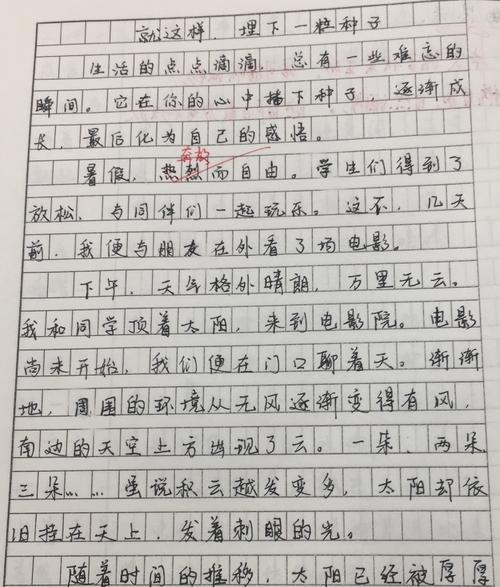 就这样，埋下一粒种子
生活的点点滴滴，总有一些难忘的
瞬间。它在你的心中播下种子，逐渐成
长，最后化为自己的感悟。
奔放
暑假，热烈而自由。学生们得到了
放松，与同伴们一起玩乐。这不，几天
前，我便与朋友在外看了场电影。
下午，天气格外晴朗，万里无云。
我和同学顶着太阳，来到电影院。电影
尚未开始，我们便在门口聊着天。渐渐
地，周围的环境从无风逐渐变得有风，
南边的天空上方出现了云。一朵，两朵，
三朵……虽说积云越发变多，太阳却依
旧挂在天上，发着刺眼的光。
随着时间的推移，太阳已经被厚厚